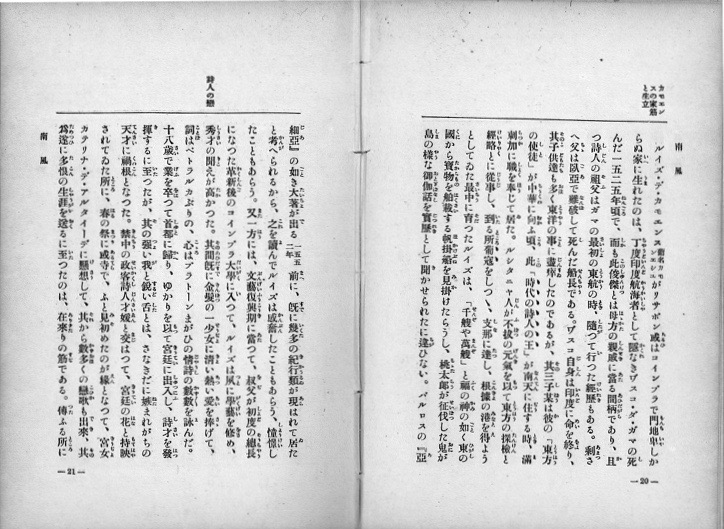 南風
カモエン
スの家筋
と生立
ルイズ・デ・カモエンスがリサボン或はコインブラで門地卑しか
らぬ家に生れたのは、丁度印度航海者として隠なきヷスコ・ダ・ガマの死
んだ一五二五年頃で、而も此俊傑とは母方の親戚に當る間柄であり、且
つ詩人の祖父はガマの最初の東航の時、隨つて行つた經歷もある。剩さ
へ父は臥亞で難破して死んだ船長である。ヷスコ自身は印度に命を終り、
其子供達も多く東洋の事に盡瘁したのであるが、其三子某は彼の「東方
の使徒」が中華に向ふ頃、此「時代の詩人の王」が南天に住する時、滿
刺加に職を奉じて居た。ルシタニヤ人が不拔の元氣を以て東方の探檢と
經略とに從事し、到る所葡冠をしつゝ、支那に達し、根據の港を得よう
としてゐた最中に育つたルイズは、「千艘や萬艘」と福の神の如く東の
國から寶物を船載する帆掛船を見掛けたらうし、桃太郎が征伐した鬼が
島の樣な御伽話を實歷として聞かせられたに違ひない。バルロスの『亞
—20—
細亞』の如き大著が出る一五五二年前に、既に幾多の紀行類が現はれて居た
と考へられるから、之を讀んでルイズは感奮したこともあらう、憧憬し
たこともあらう。又一方には、文藝復興期に當つて、叔父が初度の總長
になつた革新後のコインブラ大學に入つて、ルイズは夙に學藝を修め、
秀才の聞えが高かつた。其間既に金髮の一少女に清い熱い愛を捧げて、
詞はペトラルカぶりの、心はプラトーンまがひの情詩の數數を詠んだ。
十八歳で業を卒つて首都に歸り、ゆかりを以て宮廷に出入し、詩才を發
揮するに至つたが、其の强い我と銳い舌とは、さなきだに嫉まれがちの
天才に禍根となつた。禁中の政客詩人才媛と交はつて、宮廷の花と持映
されてゐた所に、春の祭に或寺で、ふと見初めたのが緣となつて、宮女
カテリナ・デ・アルタイーデに懸想して、其から數多くの戀歌も出來、其
爲遂に多恨の生涯を送るに至つたのは、在來りの筋である。傳ふる所に
詩人の戀
南風
—21—